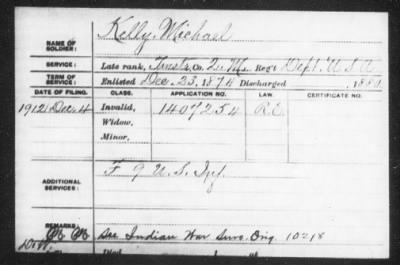 Kelly, Michael
NAME OF SOLDIER:
SERVICE: Late rank, Co. Q. M. Reg't Dept. U.S.A.
TERM OF SERVICE: Enlisted Dec. 23, 1874 Discharged , 1880
DATE OF FILING. CLASS. APPLICATION NO. LAW. CERTIFICATE NO.
1912, Dec. 4 Invalid, 1407254
Widow,
Minor,
ADDITIONAL SERVICES: F 9 U.S. Inf.
REMARKS: See Indian War Surv. Orig. 10218
Died